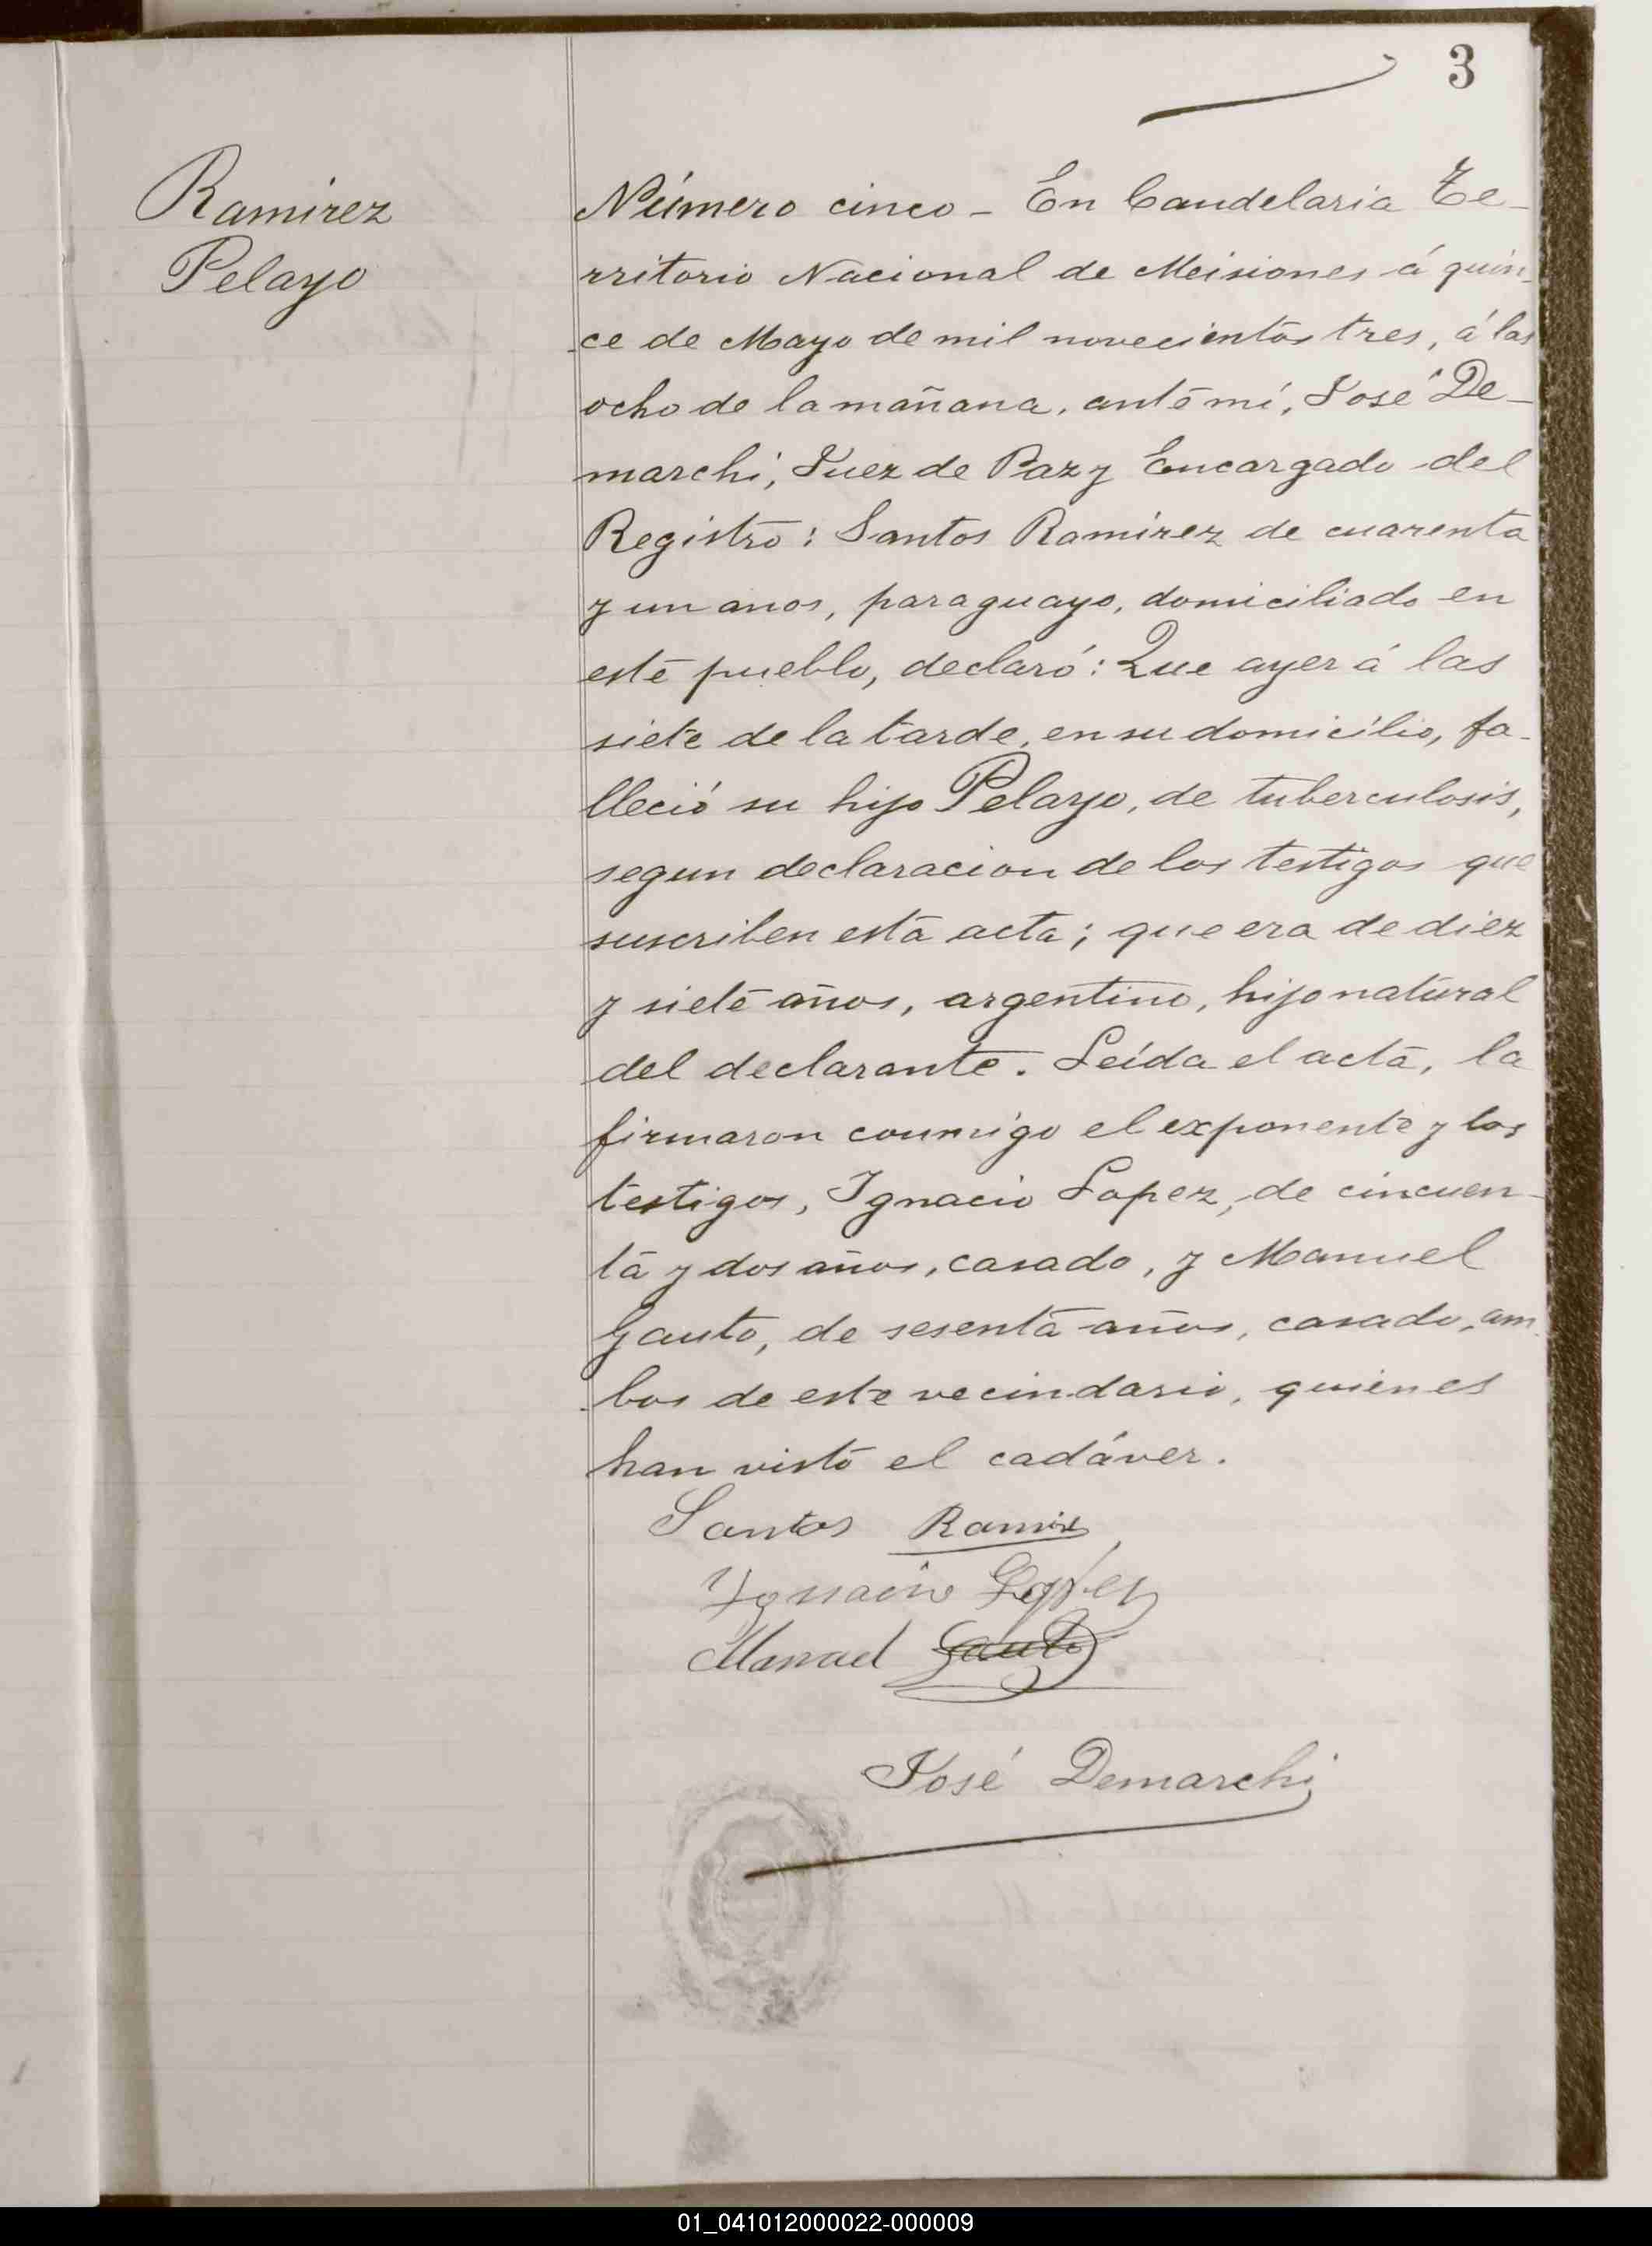 3
Ramirez
Pelayo
Número cinco - En Candelaria Te-
rritorio Nacional de Misiones á quin-
ce de Mayo de mil novecientos tres, á las
ocho de la mañana, ante mí, José De-
marchi, Juez de Paz y Encargado del
Registro: Santos Ramirez de cuarenta
y un anos, paraguayo, domiciliado en
este pueblo, declaró: Que ayer á las
siete de la tarde, en su domicilio, fa-
lleció su hijo Pelayo, de tuberculosis,
segun declaracion de los testigos que
suscriben esta acta; que era de diez
y siete años, argentino, hijo natural
del declarante. Leída el acta, la
firmaron conmigo el exponente y los
testigos, Ignacio Lopez, de cincuen-
ta y dos años, casado, y Manuel
Gauto, de sesenta años, casado, am-
bos de este vecindario, quienes
han visto el cadáver.
Santos Ramirez
Ygnacio Lopez
Manuel Gauto
José Demarchi
01_041012000022-000009